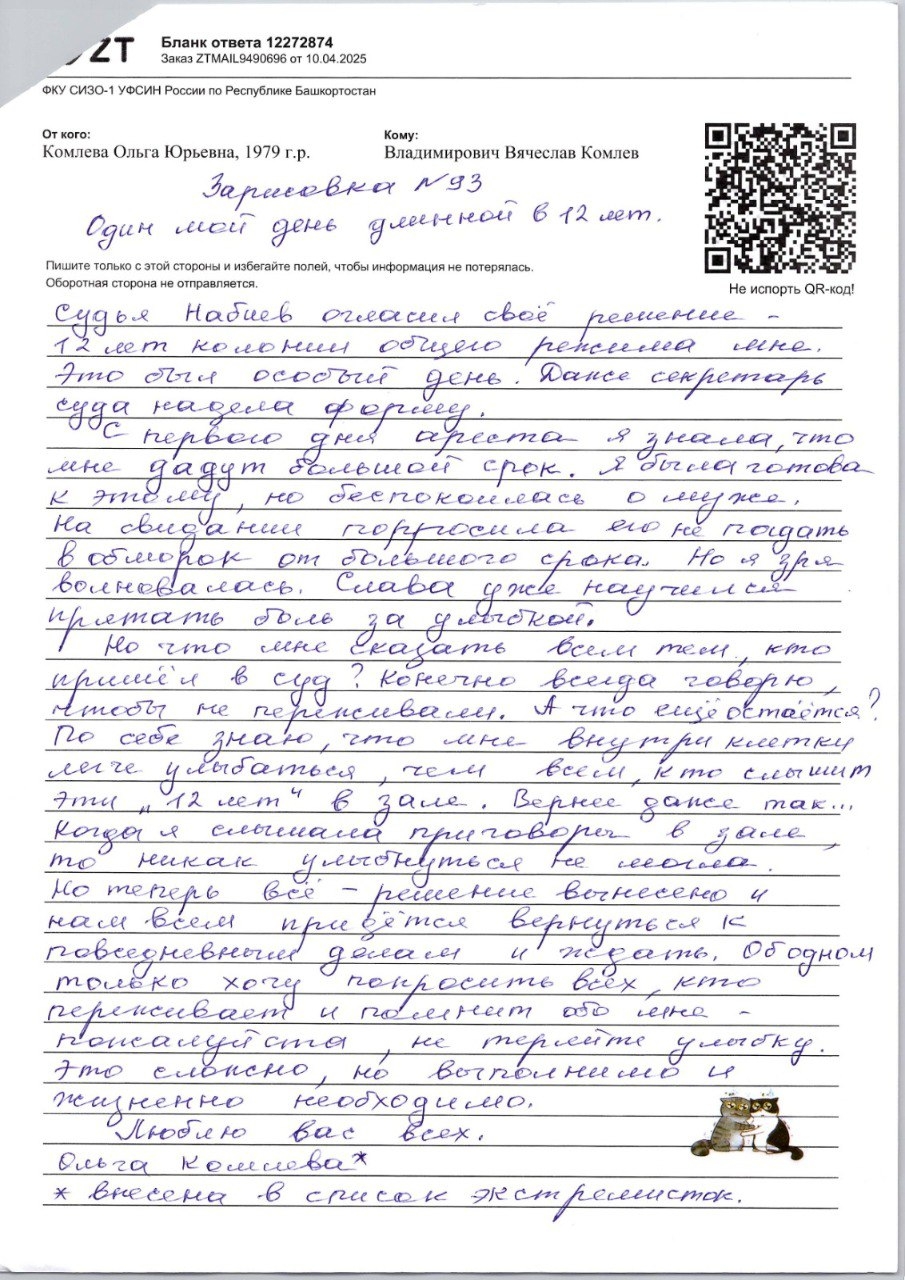 ZT
Бланк ответа 12272874
Заказ ZTMAIL9490696 от 10.04.2025
ФКУ СИЗО-1 УФСИН России по Республике Башкортостан
От кого:
Комлева Ольга Юрьевна, 1979 г.р.
Кому:
Владимирович Вячеслав Комлев
Зарисовка №93
Один мой день длинной в 12 лет.
Пишите только с этой стороны и избегайте полей, чтобы информация не потерялась.
Оборотная сторона не отправляется.
Не испорть QR-код!
Судья Набиев огласил своё решение -
12 лет колонии общего режима мне.
Это был особый день. Даже секретарь
суда надела форму.
С первого дня ареста я знала, что
мне дадут большой срок. Я была готова
к этому, но беспокоилась о муже.
На свидании попросила его не падать
в обморок от большого срока. Но я зря
волновалась. Слава уже научился
прятать боль за улыбкой.
Но что мне сказать всем тем, кто
пришёл в суд? Конечно всегда говорю,
чтобы не переживали. А что ещё остаётся?
По себе знаю, что мне внутри клетки
легче улыбаться, чем всем, кто слышит
эти „12 лет“ в зале. Вернее даже так...
Когда я слышала приговоры в зале,
то никак улыбнуться не могла.
Но теперь всё - решение вынесено и
нам всем придётся вернуться к
повседневным делам и ждать. Об одном
только хочу попросить всех, кто
переживает и помнит обо мне -
пожалуйста, не теряйте улыбку.
Это сложно, но выполнимо и
жизненно необходимо.
Люблю вас всех.
Ольга Комлева*
* внесена в список экстремисток.